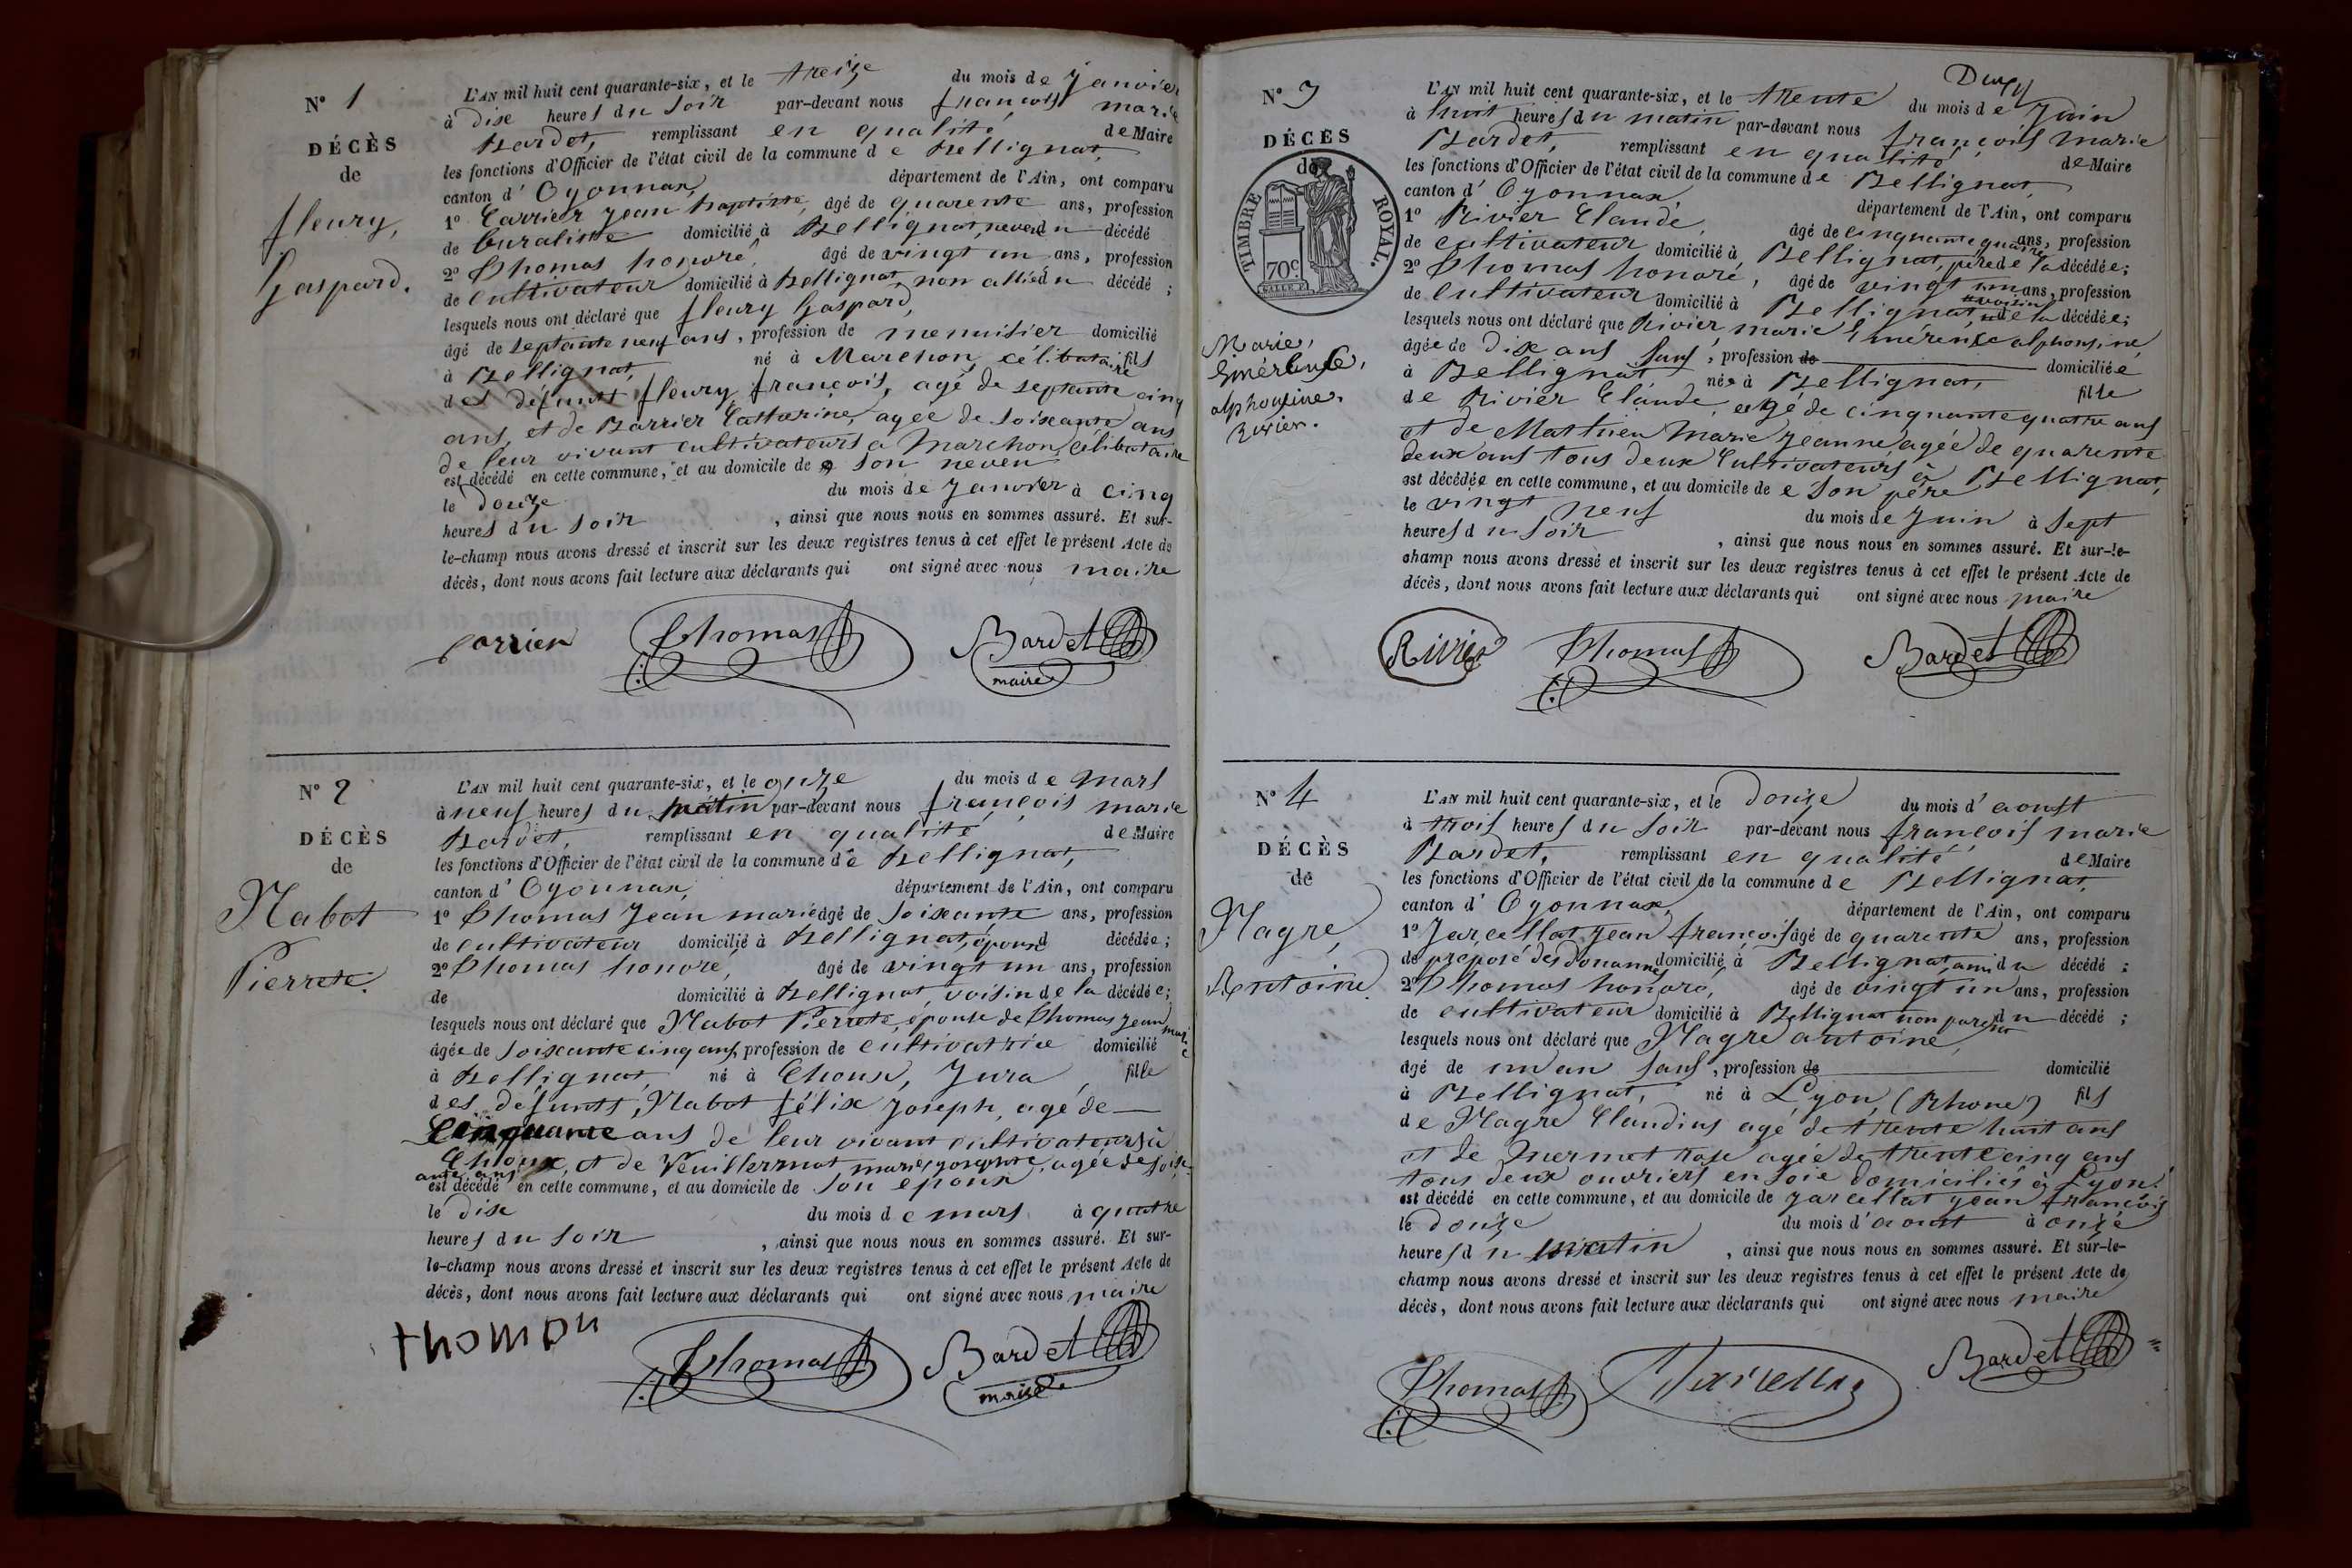 N° 1
DÉCÈS
de
fleury,
Gaspard.
L'AN mil huit cent quarante-six, et le treize du mois de Janvier
à dise heures du soir par-devant nous françois marie
Bardet, remplissant en qualité de Maire
les fonctions d'Officier de l'état civil de la commune de Bellignat,
canton d'Oyonnax, département de l'Ain, ont comparu
1° Carrier jean baptiste, âgé de quarente ans, profession
de buraliste domicilié à Bellignat, neveu du décédé
2° Thomas honoré, âgé de vingt un ans, profession
de Cultivateur domicilié à Bellignat, non allié du décédé ;
lesquels nous ont déclaré que fleury Gaspard,
âgé de septante neuf ans, profession de menuisier domicilié
à Bellignat, né à Marchon, célibataire fils
des défunts fleury françois, agé de septante cinq
ans, et de Barrier Catharine, agée de soixante ans
de leur vivant cultivateurs a Marchon, célibataire
est décédé en cette commune, et au domicile de son neveu
le douze du mois de Janvier à cinq
heures du soir, ainsi que nous nous en sommes assuré. Et sur-
le-champ nous avons dressé et inscrit sur les deux registres tenus à cet effet le présent Acte de
décès, dont nous avons fait lecture aux déclarants qui ont signé avec nous maire
carrier Thomas Bardet
maire
N° 2
DÉCÈS
de
Nabot
Pierrete.
L'AN mil huit cent quarante-six, et le onze du mois de mars
à neuf heures du matin par-devant nous françois marie
Bardet, remplissant en qualité de Maire
les fonctions d'Officier de l'état civil de la commune de Bellignat,
canton d'Oyonnax, département de l'Ain, ont comparu
1° Thomas Jean marie âgé de soixante ans, profession
de cultivateur domicilié à Bellignat, époux d décédée ;
2° Thomas honoré, âgé de vingt un ans, profession
de domicilié à Bellignat, voisin de la décédée ;
lesquels nous ont déclaré que Nabot Pierrete, épouse de Thomas jean marie
âgée de soixante cinq ans, profession de cultivatrice domicilié
à Bellignat, né à Choux, Jura, fille
des défunts, Nabot félix Joseph, agé de
Cinquante ans de leur vivant cultivateurs à
Choux, et de Vuillermot, marie josephte, agée de soix-
ante ans
est décédé en cette commune, et au domicile de son epoux
le dise du mois de mars à quatre
heures du soir, ainsi que nous nous en sommes assuré. Et sur-
le-champ nous avons dressé et inscrit sur les deux registres tenus à cet effet le présent Acte de
décès, dont nous avons fait lecture aux déclarants qui ont signé avec nous maire
Thomas Bardet
maire
N° 3
DÉCÈS
de
TIMBRE ROYAL.
70c.
Marie,
Emérense,
alphonsine,
Rivier.
L'AN mil huit cent quarante-six, et le trente du mois de Juin
à huit heures du matin par-devant nous françois marie
Bardet, remplissant en qualité de Maire
les fonctions d'Officier de l'état civil de la commune de Bellignat,
canton d'Oyonnax, département de l'Ain, ont comparu
1° Rivier Claude, âgé de cinquante quatre ans, profession
de cultivateur domicilié à Bellignat, père de la décédée ;
2° Thomas honoré, âgé de vingt un ans, profession
de Cultivateur domicilié à Bellignat voisin de la décédée ;
lesquels nous ont déclaré que Rivier, marie Emérense alphonsine,
âgée de dix ans sans, profession de domiciliée
à Bellignat née à Bellignat, fille
de Rivier Claude, agé de cinquante quatre ans
et de Mathieu Marie Jeanne, agée de quarente
deux ans tous deux Cultivateurs à Bellignat,
est décédée en cette commune, et au domicile de son père
le vingt neuf du mois de Juin à sept
heures du soir, ainsi que nous nous en sommes assuré. Et sur-le-
champ nous avons dressé et inscrit sur les deux registres tenus à cet effet le présent Acte de
décès, dont nous avons fait lecture aux déclarants qui ont signé avec nous maire
Rivier Thomas Bardet
N° 4
DÉCÈS
de
Magre,
Antoine.
L'AN mil huit cent quarante-six, et le douze du mois d'aoust
à trois heures du soir par-devant nous françois marie
Bardet, remplissant en qualité de Maire
les fonctions d'Officier de l'état civil de la commune de Bellignat,
canton d'Oyonnax, département de l'Ain, ont comparu
1° Jarcellat jean françois âgé de quarente ans, profession
de preposé des douannes domicilié à Bellignat, ami du décédé ;
2° Thomas honoré, âgé de vingt un ans, profession
de cultivateur domicilié à Bellignat non parent du décédé ;
lesquels nous ont déclaré que Magre antoine,
âgé de un an sans, profession de domicilié
à Bellignat, né à Lyon, (Rhone) fils
de Magre Claudius agé de trente huit ans
et de Mermet rose agée de trente cinq ans
tous deux ouvriers en soie domiciliés à Lyon.
est décédé en cette commune, et au domicile de jarcellat jean françois
le douze du mois d'aoust à onze
heures du matin, ainsi que nous nous en sommes assuré. Et sur-le-
champ nous avons dressé et inscrit sur les deux registres tenus à cet effet le présent Acte de
décès, dont nous avons fait lecture aux déclarants qui ont signé avec nous maire
Thomas Bardet